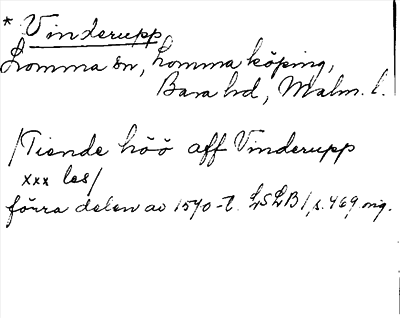 * Vinderupp
Lomma sn, Lomma köping,
Bara hd, Malm. l.
/Tiende höö aff Vinderupp
xxx les/
förra delen av 1570-t. LSLB 1, s. 469, orig.